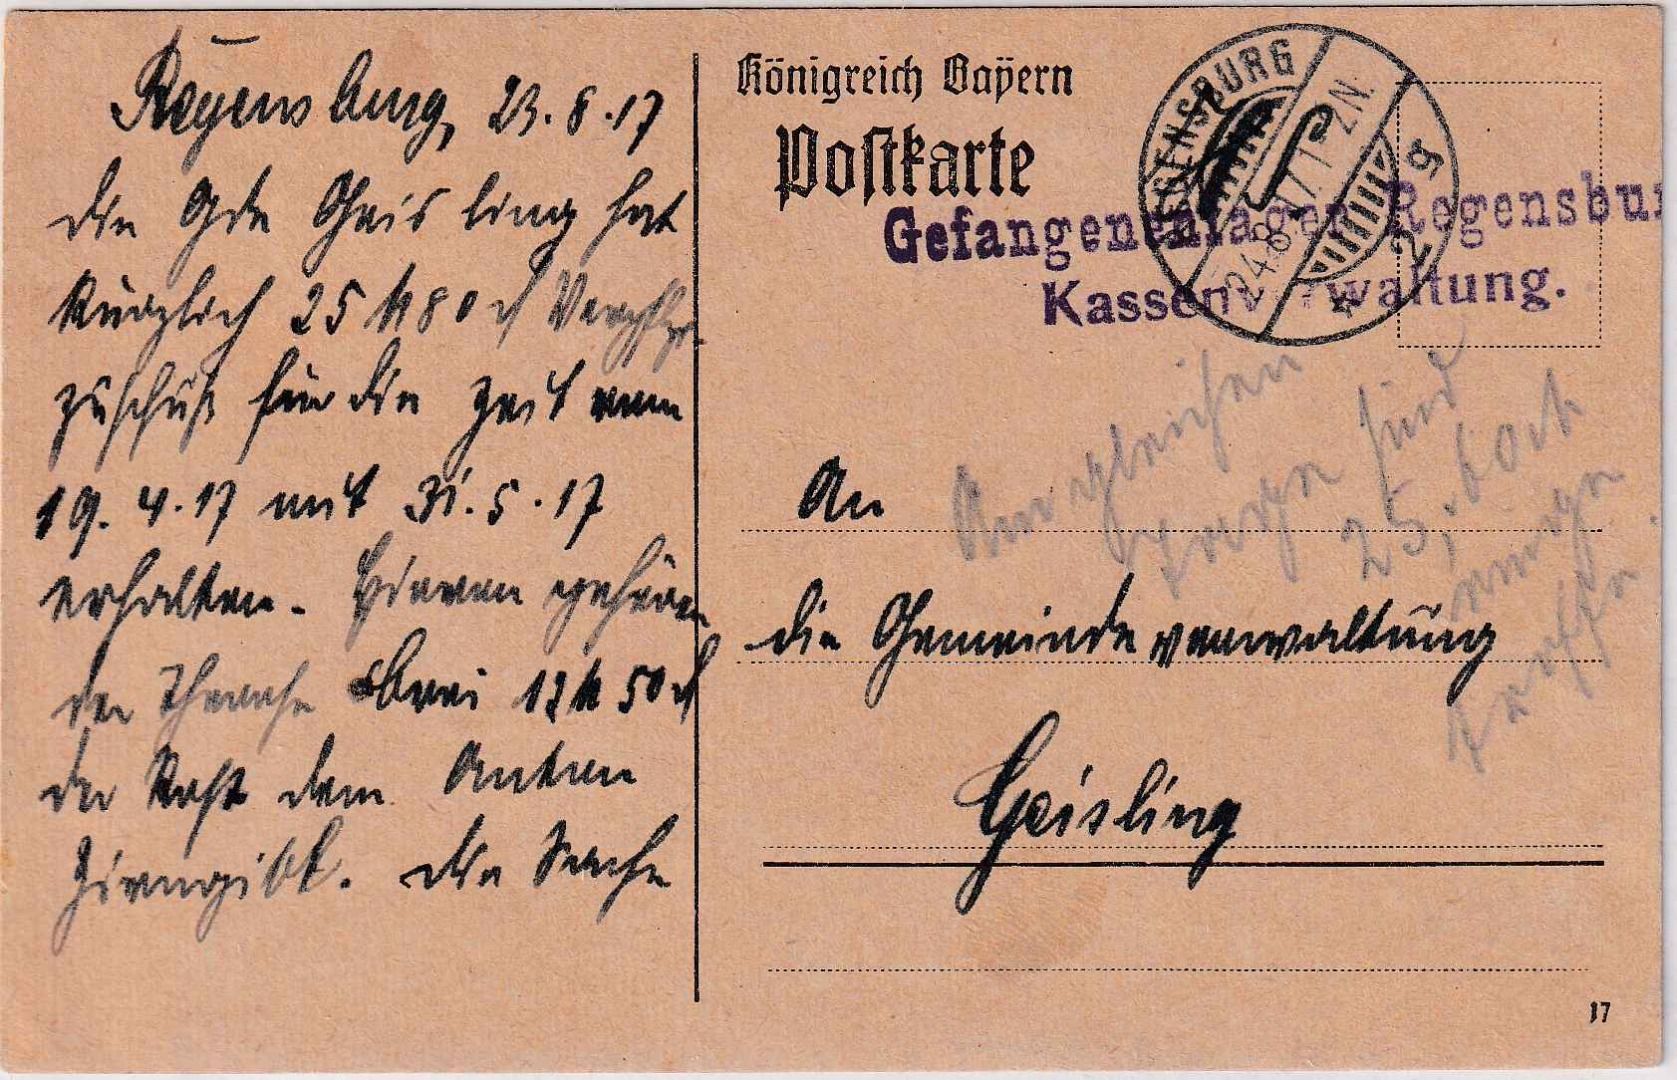 Regensburg, 23.8.17
Die Gde Geisling hat
kürzlich 25 M 80 ₰ Verpfl.
zuschuß für die Zeit vom
19.4.17 mit 31.5.17
erhalten. Hievon gehören
der 12 M 50 ₰
der Rest dem Anton
Zirngibl. Die Sache
Königreich Bayern
Postkarte
REGENSBURG 2
24.8.17. 1-2N.
Gefangenenlager Regensbur
Kassenverwaltung.
An
die Gemeindeverwaltung
Geisling
sind
17